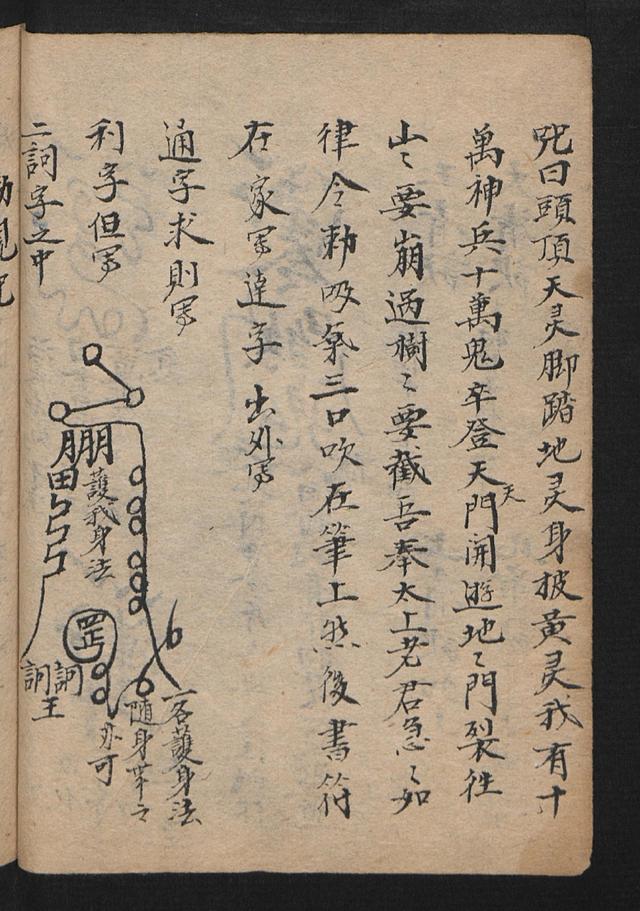 咒曰頭頂天灵脚踏地灵身披黃灵我有十
萬神兵十萬鬼卒登天天門開遊地〻門裂往
山〻要崩過樹〻要截吾奉太上老君急〻如
律令勅吸氣三口吹在筆上然後書符
在家寫達字出外寫
通字求則寫
利字但寫
二詞字之中
朋
田
護我身法
罡
詞王
詞
亦可
隨身帶之
一各護身法